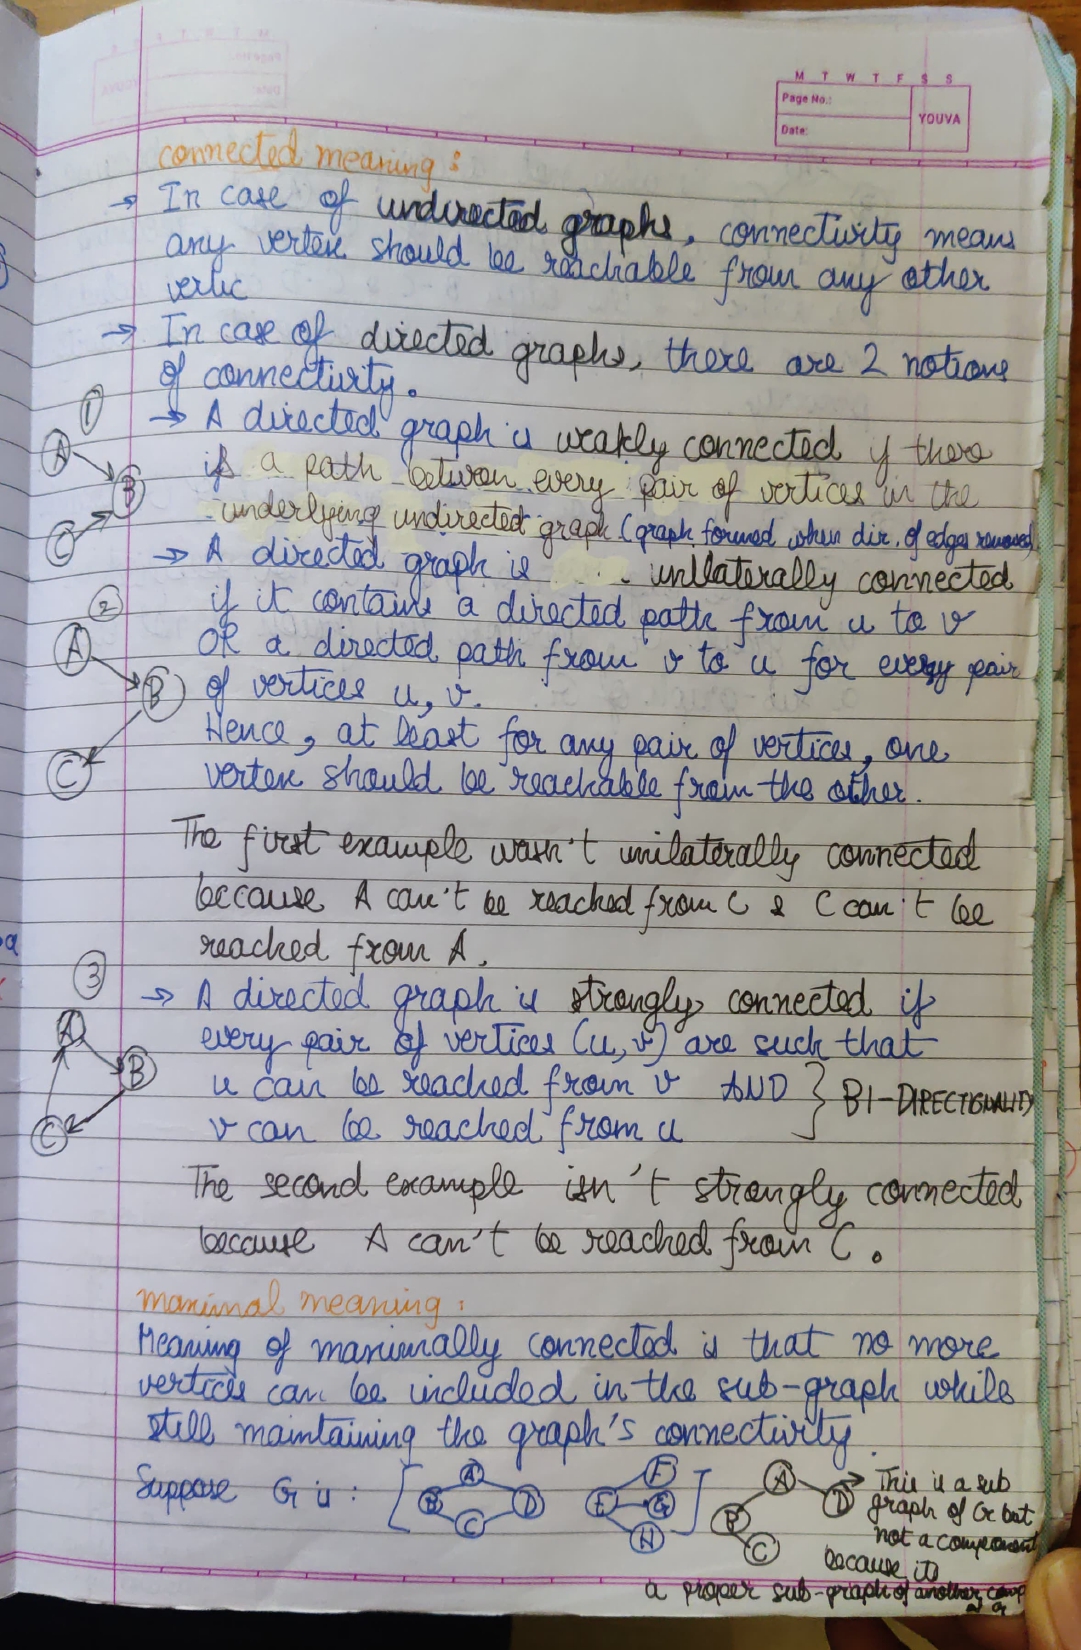 M T W T F S S
Page No.:
Date:
YOUVA
connected meaning :
→ In case of undirected graphs, connectivity means
any vertex should be reachable from any other
vertic
→ In case of directed graphs, there are 2 notions
of connectivity.
→ A directed graph is weakly connected if there
is a path between every pair of vertices in the
underlying undirected graph (graph formed when dir. of edges removed)
→ A directed graph is unilaterally connected
if it contains a directed path from u to v
OR a directed path from v to u for every pair
of vertices u, v.
Hence, at least for any pair of vertices, one
vertex should be reachable from the other.
The first example wasn't unilaterally connected
because A can't be reached from C & C can't be
reached from A.
→ A directed graph is strongly connected if
every pair of vertices (u, v) are such that
u can be reached from v AND
v can be reached from u
} BI-DIRECTIONALITY
The second example isn't strongly connected
because A can't be reached from C.
1
A
B
C
2
A
B
C
3
A
B
C
maximal meaning :
Meaning of maximally connected is that no more
vertices can be included in the sub-graph while
still maintaining the graph's connectivity.
Suppose G is :
A
B D
C
F
E G
H
A
B D
C
→ This is a sub
graph of G but
not a component
because its
a proper sub-graph of another comp